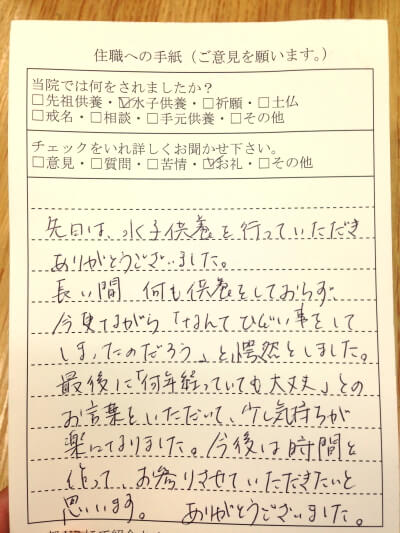 住職への手紙（ご意見を願います。）
当院では何をされましたか？
□先祖供養・☑水子供養・□祈願・□土仏
□戒名・□相談・□手元供養・□その他
チェックをいれ詳しくお聞かせ下さい。
□意見・□質問・□苦情・☑お礼・□その他
先日は、水子供養を行っていただき
ありがとうございました。
長い間 何も供養をしておらず、
今更ながら「なんてひどい事をして
しまったのだろう」と愕然としました。
最後に「何年経っていても大丈夫」との
お言葉をいただいて、少し気持ちが
楽になりました。今後は時間を
作って、お参りさせていただきたいと
思います。 ありがとうございました。